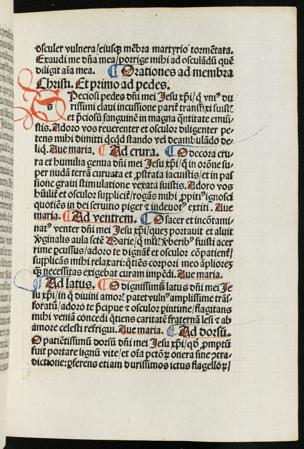 osculer vulnera / eiusq; mēbra martyrio tormētata.
Exaudi me dn̄a mea / porrige mihi ad osculādū que
diligit aīa mea. Orationes ad membra
Christi. Et primo ad pedes.
Speciosi pedes dn̄i mei Jesu xp̄i / q
durissimi claui incussione parit trāsfixi fuist
et p̄ciosū sanguinē in magna q̄ntitate emi
stis. Adoro vos reuerenter et osculor diligenter pe
tens mihi dimitti qcqd stando vel deambulādo de
liq. Aue maria. Ad crura. O decora cru
ra et humilia genua dn̄i mei Jesu xp̄i / q in orōne su
per nudā terrā curuata et p̄strata iacuistis / et in paſ
ſione graui stimulatione vexata fuistis. Adoro vos
hūilit et osculor supplicit / rogās mihi
quotiēs in dei seruitio piget et indeuot extiti. Aue
maria. Ad ventrem. O sacer et incōtami
nat venter dn̄i mei Jesu xp̄i / ques portauit et aluit
v̄ginalis aula scte Marie / q fuisti acer
rime pcussus / adoro te dignāt et osculor cōpatient
supplicās mihi relaxari: qtiēs corpori meo āpliores
q̄ necessitas exigebat curam impēdi. Aue maria.
Ad latus. O dignissimū latus dn̄i mei Je
su xp̄i / in q diuini amor patet vuln amplissime trāſ
foratū / adoro te p̄cipue et osculor p̄intime / flagitans
mihi veniā concedi qtiens caritatē fraternā lesi et ab
amore celesti refrigui. Aue maria. Ad dorsū.
O patiētissimū dorsū dn̄i mei Jesu xp̄i / qd p̄mptū
fuit portare lignū vite / et oīa pctōꝝ onera sine ɔtra
dictione: p̄ferens etiam durissimos ictus flagelloꝝ /